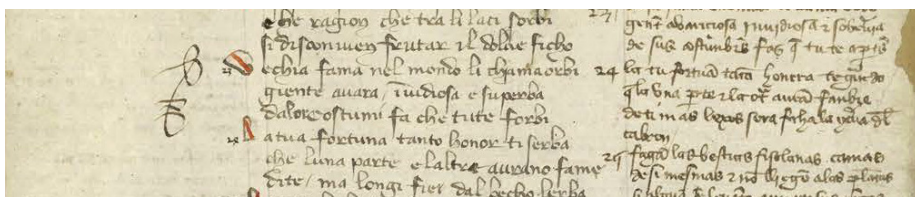 e he ragion che tra li laci sorbi
si disconuien frutar il dolce ficho
echia fama nel mondo li chiama orbi
giente auara, iuidiosa e superba
dalor costumi fa che tute forbi
a tua fortuna tanto honor ti serba
che luna parte e laltra aurano fame
dite, ma longi fier dal becho lerba
gent auariciosa jnuidiosa & soberuia
de sus costunbrs faz q tu te aptes
24 la tu fortuna tata honrra te
q la vna parte e la otra auran fanbre
de ti mas lexos sera fecha la yerua dl
cabron
25 fagan las bestias fisolanas camas
de si mesmas & no llegen a las plantas